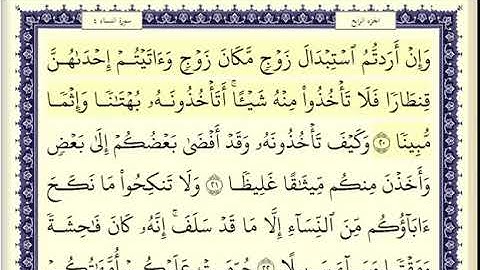 الجزء الرابع سورة النساء ٤
وَإِنْ أَرَدتُّمُ ٱسْتِبْدَالَ زَوْجٍ مَّكَانَ زَوْجٍ وَءَاتَيْتُمْ إِحْدَىٰهُنَّ
قِنطَارًا فَلَا تَأْخُذُوا۟ مِنْهُ شَيْـًٔا ۚ أَتَأْخُذُونَهُۥ بُهْتَـٰنًا وَإِثْمًا
مُّبِينًا ٢٠ وَكَيْفَ تَأْخُذُونَهُۥ وَقَدْ أَفْضَىٰ بَعْضُكُمْ إِلَىٰ بَعْضٍ
وَأَخَذْنَ مِنكُم مِّيثَـٰقًا غَلِيظًا ٢١ وَلَا تَنكِحُوا۟ مَا نَكَحَ
ءَابَآؤُكُم مِّنَ ٱلنِّسَآءِ إِلَّا مَا قَدْ سَلَفَ ۚ إِنَّهُۥ كَانَ فَـٰحِشَةً
وَمَقْتًا وَسَآءَ سَبِيلًا ٢٢ حُرِّمَتْ عَلَيْكُمْ أُمَّهَـٰتُكُمْ